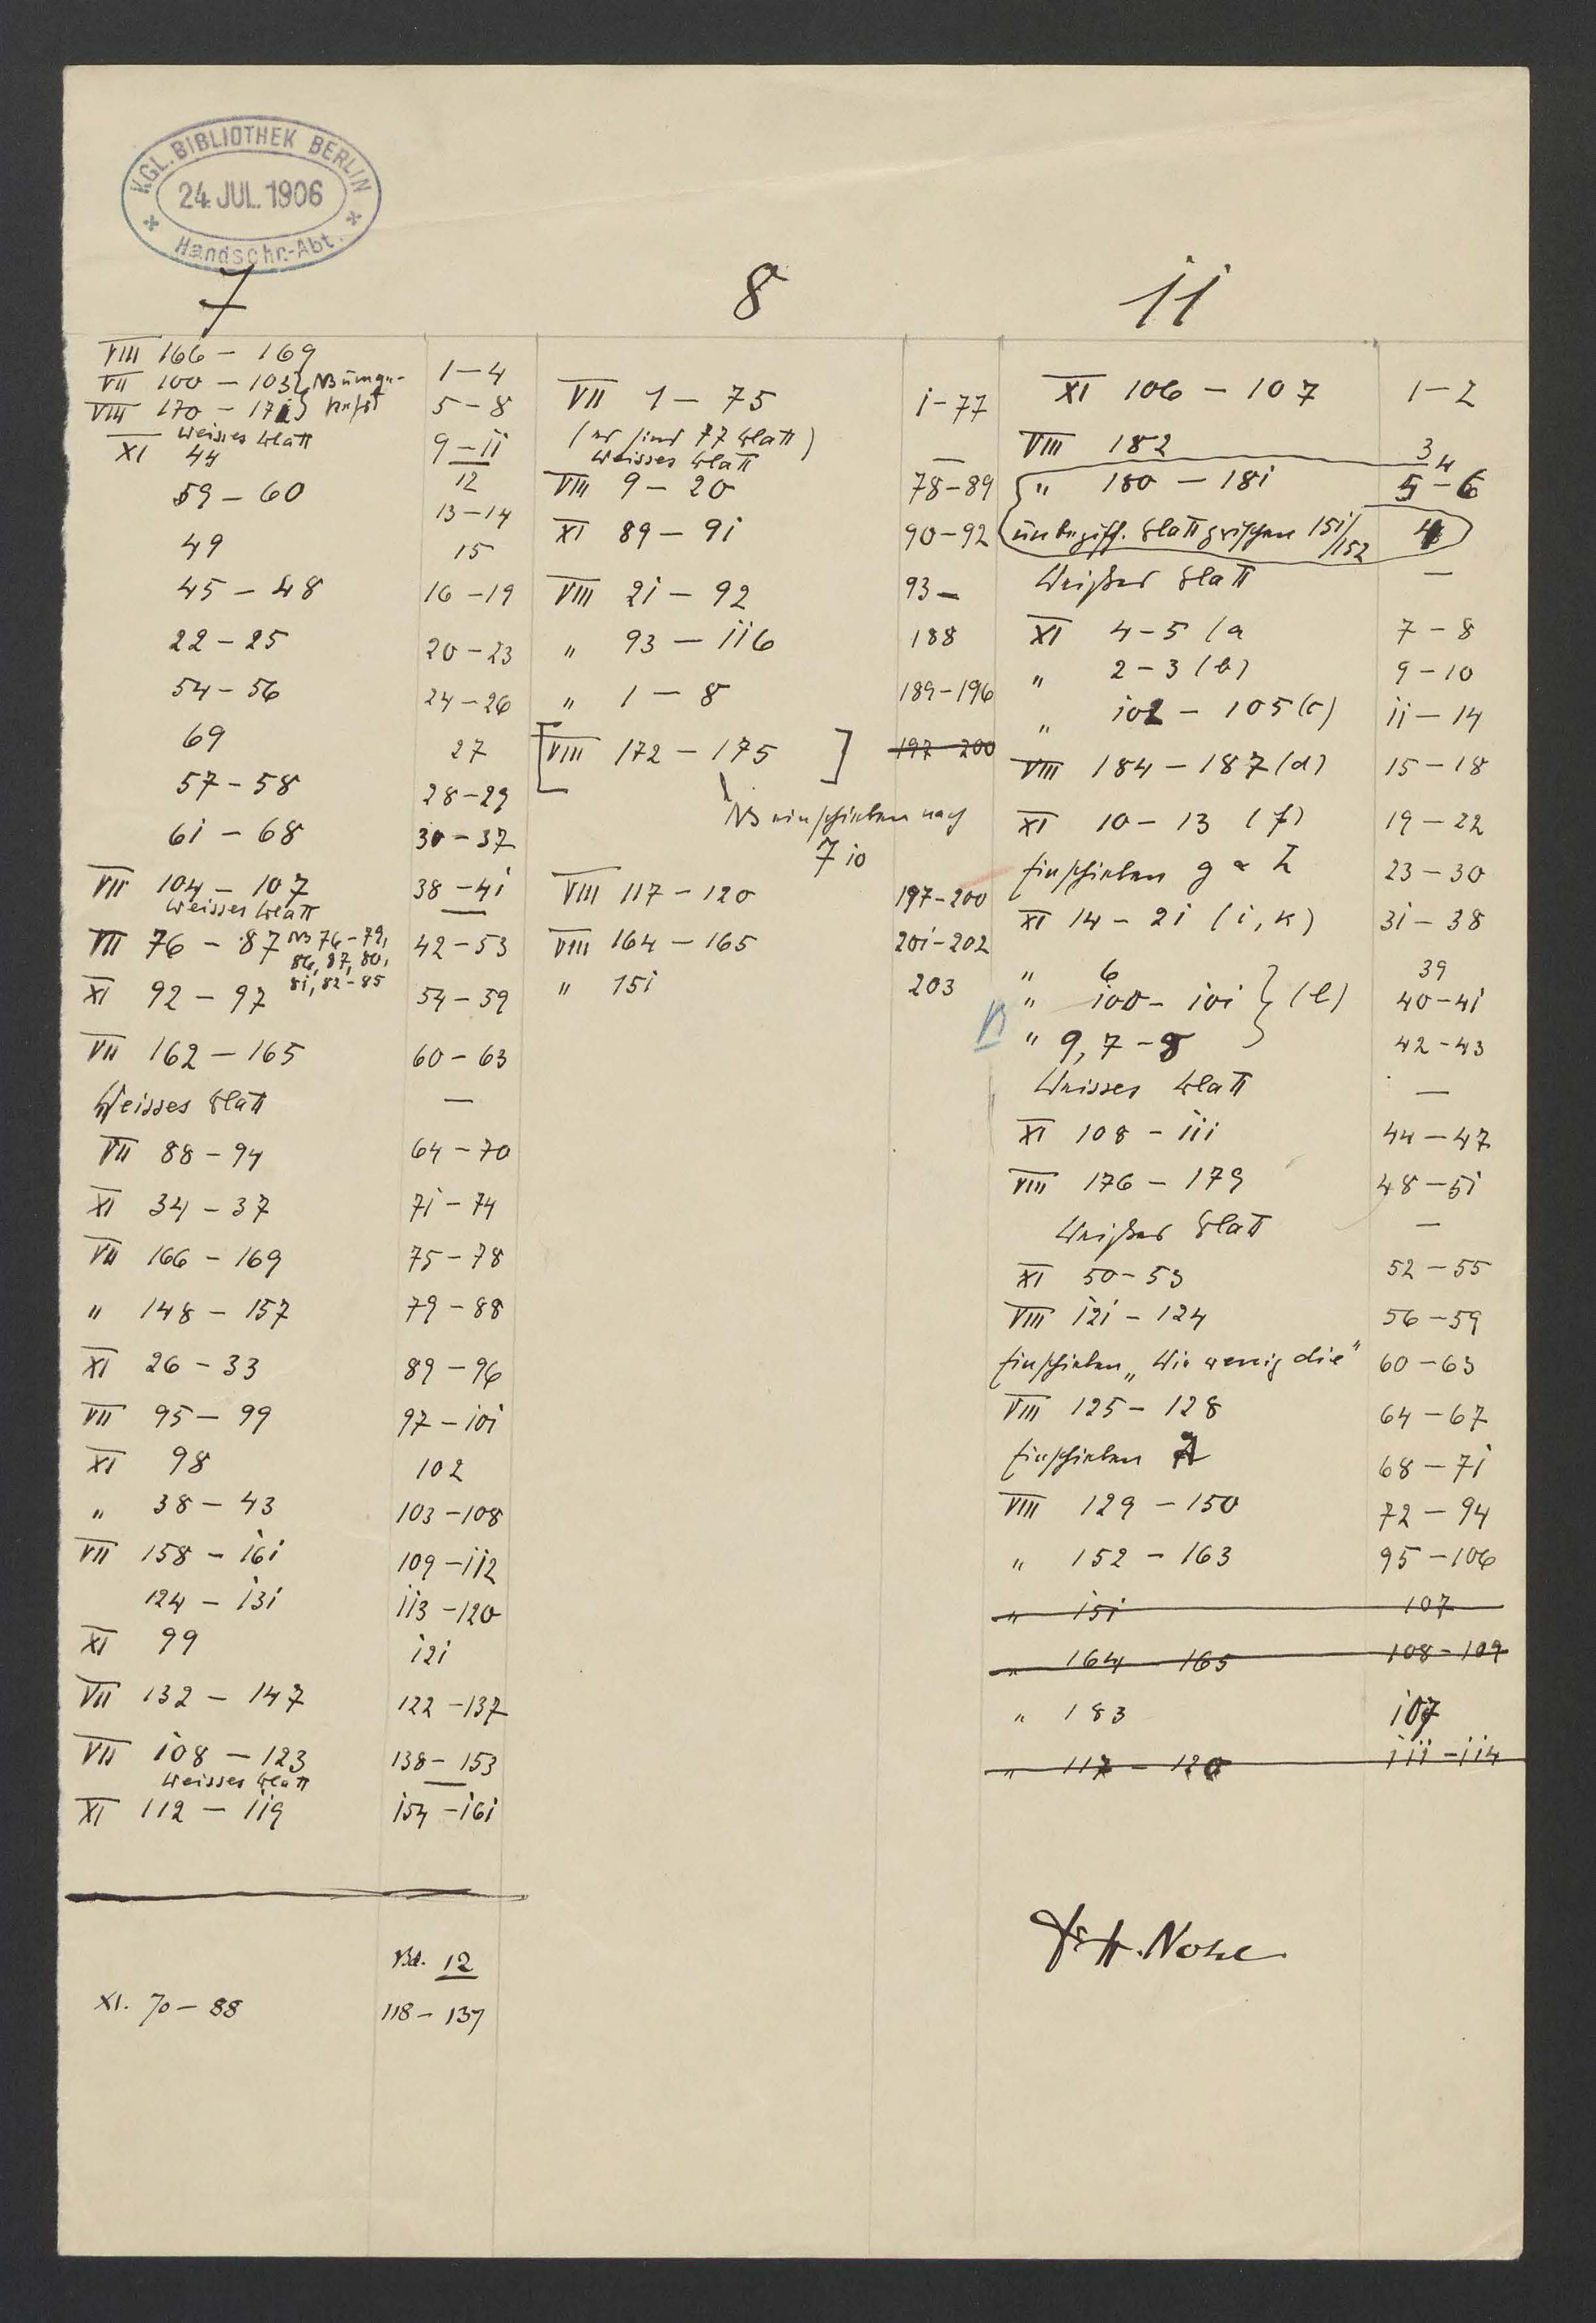 KGL. BIBLIOTHEK BERLIN
24. JUL. 1906
Handschr.-Abt.
7
VIII 166 – 169
1 – 4
VII 100 – 103 } NB umge-
5 – 8
VIII 170 – 172 } kehrt
Weisses Blatt
9 – 11
XI 44
12
59 – 60
13 – 14
49
15
45 – 48
16 – 19
22 – 25
20 – 23
54 – 56
24 – 26
69
27
57 – 58
28 – 29
61 – 68
30 – 37
VII 104 – 107
38 – 41
Weisses Blatt
VII 76 – 87 NB 76 – 79,
86, 87, 80,
81, 82 – 85
42 – 53
XI 92 – 97
54 – 59
VII 162 – 165
60 – 63
Weisses Blatt
—
VII 88 – 94
64 – 70
XI 34 – 37
71 – 74
VII 166 – 169
75 – 78
" 148 – 157
79 – 88
XI 26 – 33
89 – 96
VII 95 – 99
97 – 101
XI 98
102
" 38 – 43
103 – 108
VII 158 – 161
109 – 112
124 – 131
113 – 120
XI 99
121
VII 132 – 147
122 – 137
VII 108 – 123
138 – 153
Weisses Blatt
—
XI 112 – 119
154 – 161
Bd. 12
XI. 70 – 88
118 – 137
8
VII 1 – 75
1 – 77
(es sind 77 Blatt)
Weisses Blatt
—
VIII 9 – 20
78 – 89
XI 89 – 91
90 – 92
VIII 21 – 92
93 –
" 93 – 116
188
" 1 – 8
189 – 196
[VIII 172 – 175]
197 – 200
NB einschieben nach
7 10
VIII 117 – 120
197 – 200
VIII 164 – 165
201 – 202
" 151
203
11
XI 106 – 107
1 – 2
VIII 182
3
" 180 – 181
5 – 6
unbeziff. Blatt zwischen 151/
/152
4
Weißes Blatt
—
XI 4 – 5 (a
7 – 8
" 2 – 3 (b)
9 – 10
" 102 – 105 (c)
11 – 14
VIII 184 – 187 (d)
15 – 18
XI 10 – 13 (f)
19 – 22
Einschieben g
23 – 30
XI 14 – 21 (i, k)
31 – 38
" 6
39
" 100 – 101 } (l)
40 – 41
" 9, 7 – 8
42 – 43
Weisses Blatt
—
XI 108 – 111
44 – 47
VIII 176 – 179
48 – 51
Weißes Blatt
—
XI 50 – 53
52 – 55
VIII 121 – 124
56 – 59
Einschieben „Wie wenig die"
60 – 63
VIII 125 – 128
64 – 67
Einschieben
68 – 71
VIII 129 – 150
72 – 94
" 152 – 163
95 – 106
" 151
107
" 164 – 165
108 – 109
" 183
107
" 117 – 120
111 – 114
Dr H. Nohl